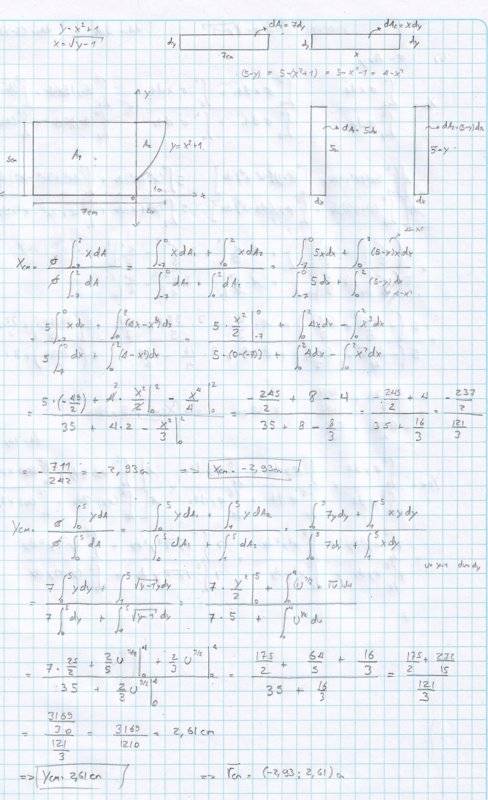 y = x²+1
x = √(y-1)
dy 7cm dA₁ = 7dy
dy x dA₂ = xdy
(5-y) = 5-(x²+1) = 5-x²-1 = 4-x²
y
5cm A₁ A₂ y = x²+1
7cm 0 x
5 dA₁ = 5dx dx
5-y dA₂ = (5-y)dx dx
Xcm = σ∫₋₇² xdA / σ∫₋₇² dA = (∫₋₇⁰ xdA₁ + ∫₀² xdA₂) / (∫₋₇⁰ dA₁ + ∫₀² dA₂) = (∫₋₇⁰ 5xdx + ∫₀² (5-y)xdx) / (∫₋₇⁰ 5dx + ∫₀² (5-y)dx) 4-x² 4-x²
= (5∫₋₇⁰ xdx + ∫₀² (4x-x³)dx) / (5∫₋₇⁰ dx + ∫₀² (4-x²)dx) = (5·x²/2|₋₇⁰ + ∫₀² 4xdx - ∫₀² x³dx) / (5·(0-(-7)) + ∫₀² 4dx - ∫₀² x²dx)
= (5·(-49/2) + 4·x²/2|₀² - x⁴/4|₀²) / (35 + 4·2 - x³/3|₀²) = (-245/2 + 8 - 4) / (35 + 8 - 8/3) = (-245/2 + 4) / (35 + 16/3) = (-237/2) / (121/3)
= -711/242 = -2,93cm => Xcm = -2,93cm
Ycm = σ∫₀⁵ ydA / σ∫₀⁵ dA = (∫₀⁵ ydA₁ + ∫₁⁵ ydA₂) / (∫₀⁵ dA₁ + ∫₁⁵ dA₂) = (∫₀⁵ 7ydy + ∫₁⁵ xydy) / (∫₀⁵ 7dy + ∫₁⁵ xdy)
u = y-1 du = dy
= (7∫₀⁵ ydy + ∫₁⁵ √(y-1)ydy) / (7∫₀⁵ dy + ∫₁⁵ √(y-1)dy) = (7·y²/2|₀⁵ + ∫₀⁴ (u³/² + √u)du) / (7·5 + ∫₀⁴ u¹/² du)
= (7·25/2 + 2/5 u⁵/²|₀⁴ + 2/3 u³/²|₀⁴) / (35 + 2/3 u³/²|₀⁴) = (175/2 + 64/5 + 16/3) / (35 + 16/3) = (175/2 + 272/15) / (121/3)
= (3169/30) / (121/3) = 3169/1210 = 2,61cm
=> Ycm = 2,61cm => r̄cm = (-2,93; 2,61)cm